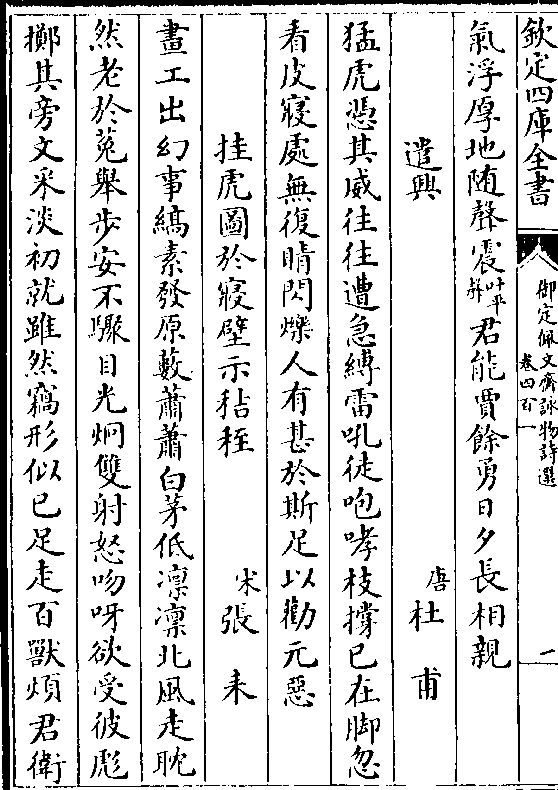 欽定四庫全書
御定佩文齋詠物詩選
卷四百一
一
氣浮厚地随聲震叶平聲君能賈餘勇日夕長相親
遣興
唐杜甫
猛虎憑其威往往遭急縛雷吼徒咆哮枝撐已在脚忽
看皮寢處無復睛閃爍人有甚於斯足以勸元惡
挂虎圖於寢壁示秸秷
宋張耒
畫工出幻事縞素發原藪蕭蕭白茅低凛凛北風走耽
然老於菟舉步安不驟目光炯雙射怒吻呀欲受彼彪
擲其旁文采淡初就雖然竊形似已足走百獸煩君衛